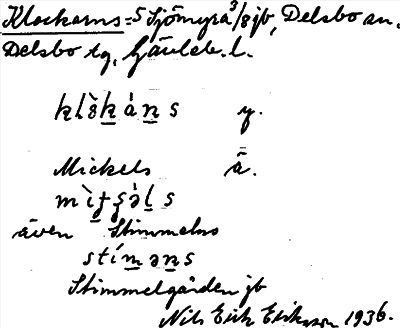 Klockarns = 5 Sjömyra 3/8 jb, Delsbo sn.
Delsbo tg, Gävleb. l.
klòkáns y.
Mickels ä.
även Stimmelns
stíməns
Stimmelgården jb
Nils Erik Eriksson 1936.